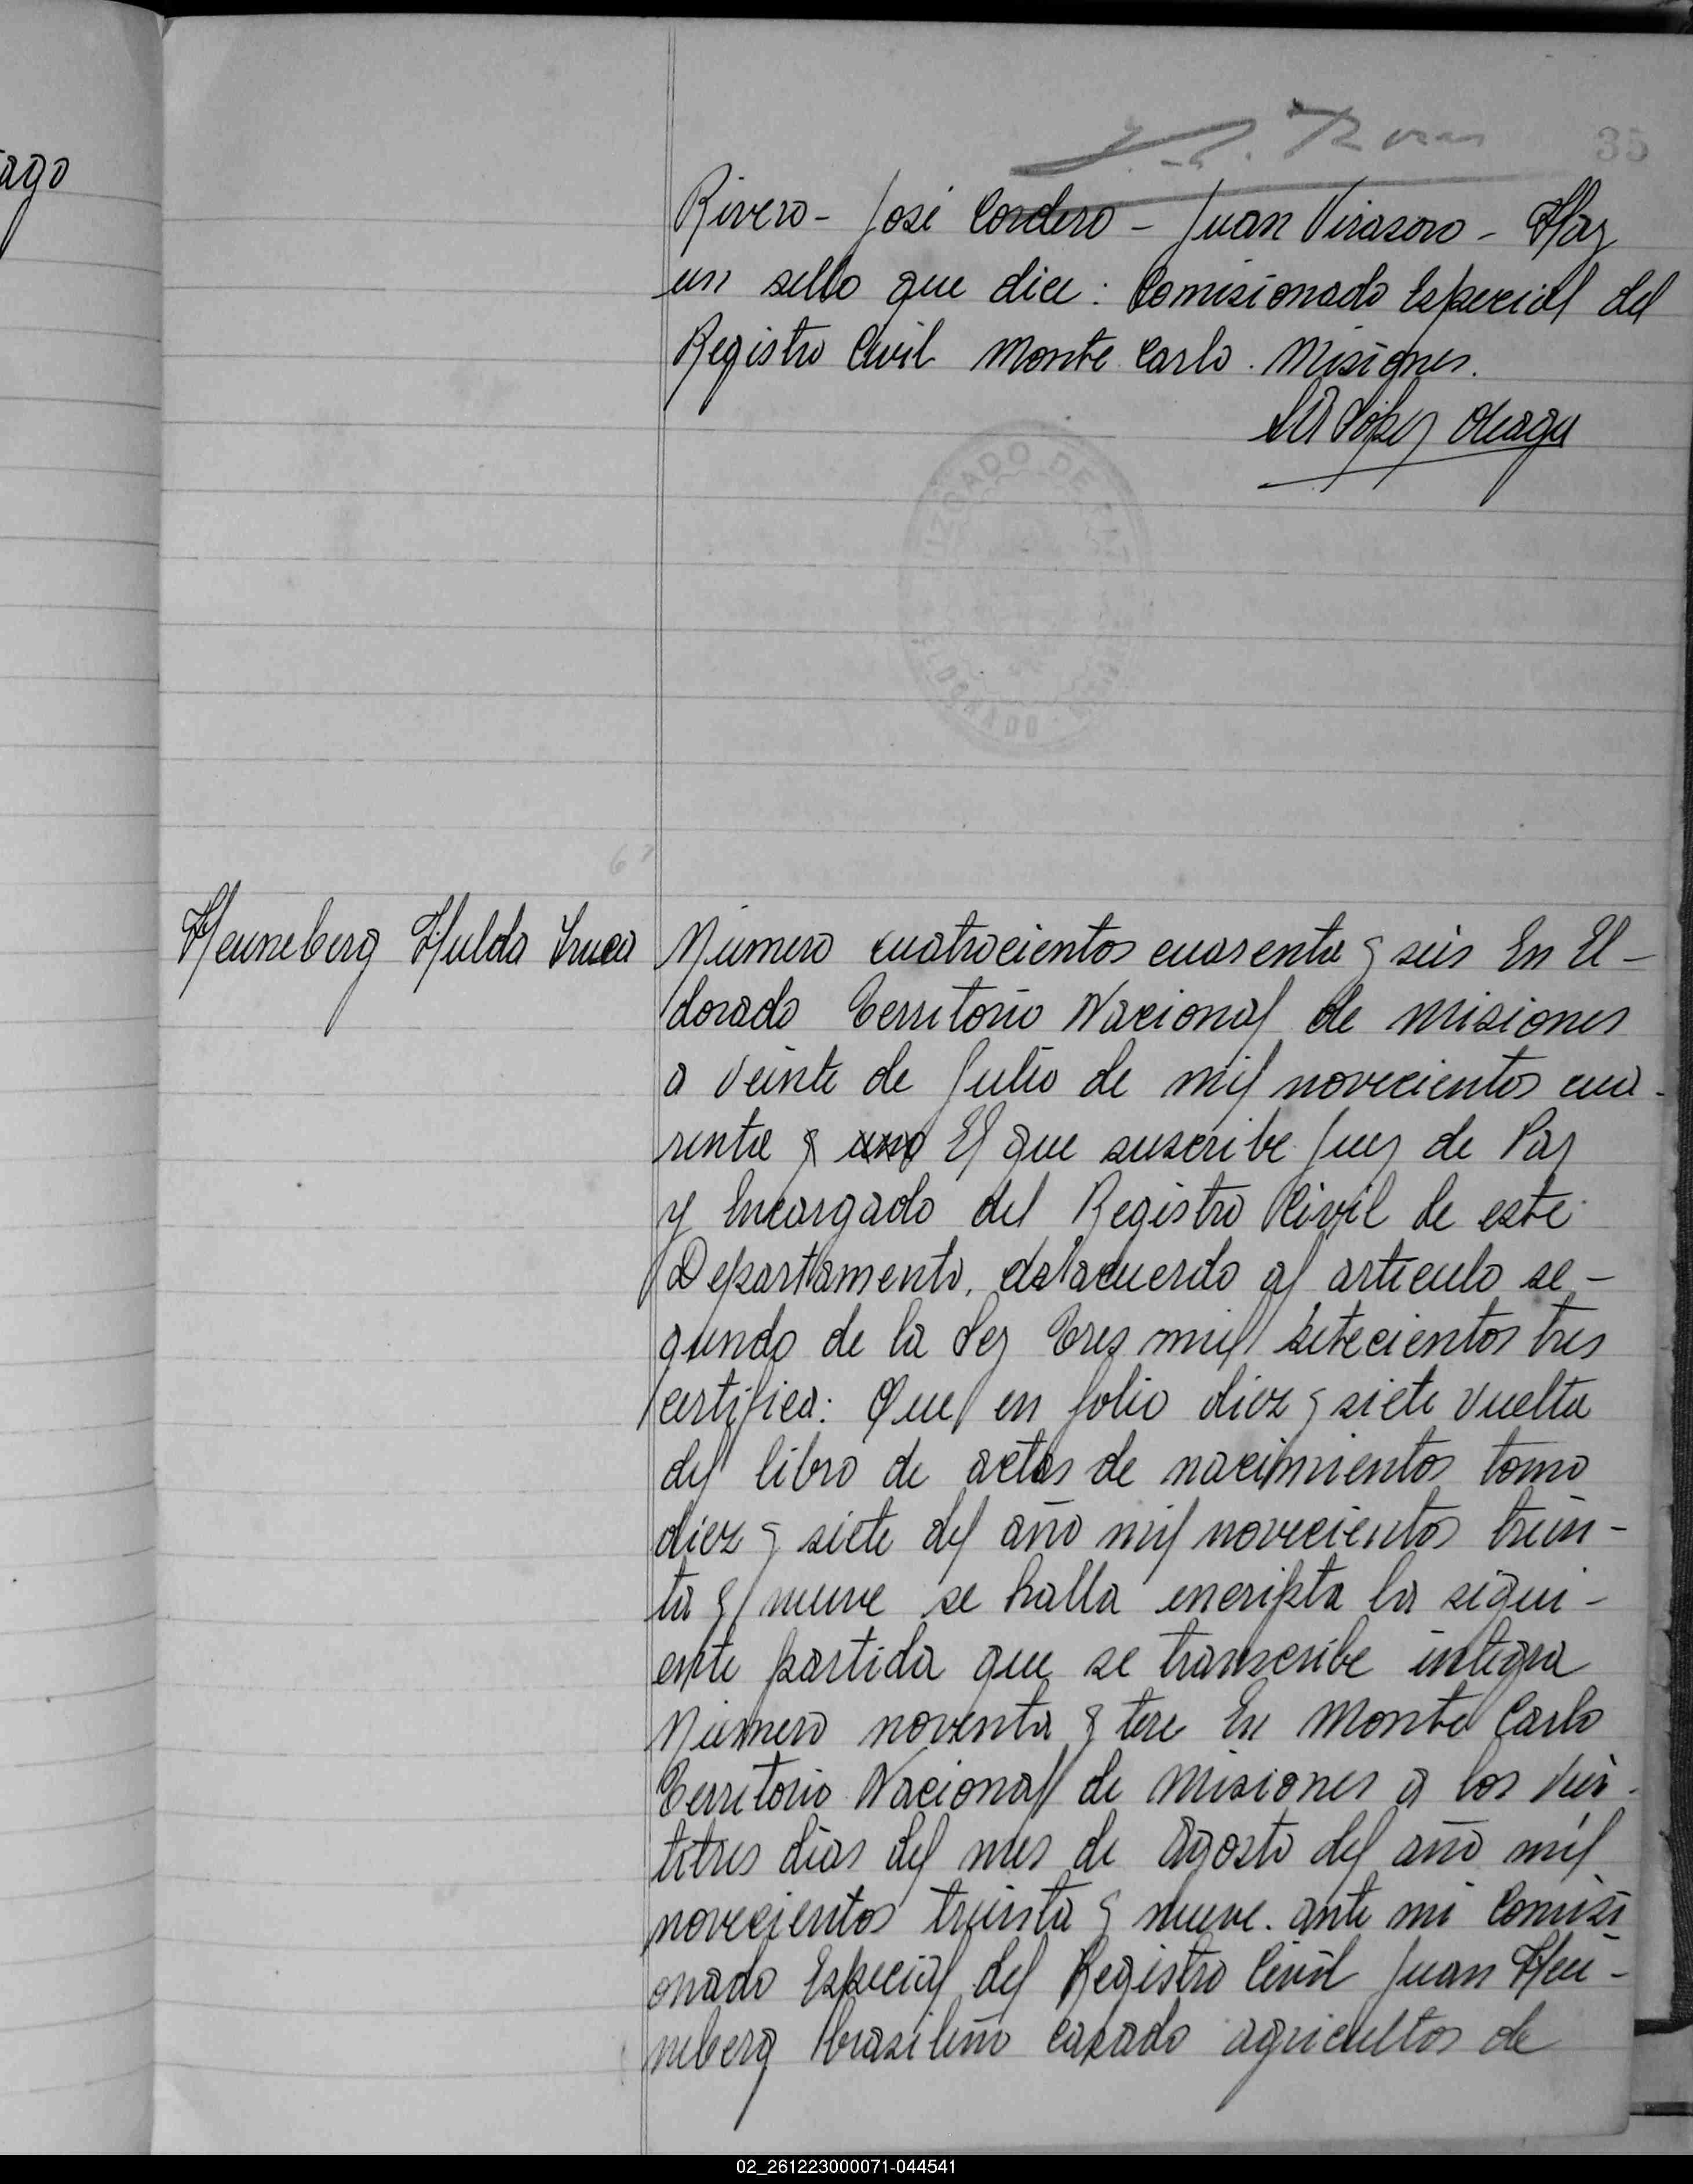 ago
35
Rivero - José Cordero - Juan Virasoro - Hay
un sello que dice: Comisionado Especial del
Registro Civil Monte Carlo. Misiones.
López
JUZGADO DE PAZ
67
Henneberg Hulda
Número cuatrocientos cuarenta y seis En El-
dorado Territorio Nacional de Misiones
a veinte de Julio de mil novecientos cua-
renta y uno El que suscribe Juez de Paz
y Encargado del Registro Civil de este
Departamento, de acuerdo al articulo se-
gundo de la Ley Tres mil setecientos tres
certifica: Que en folio diez y siete vuelta
del libro de actas de nacimientos tomo
diez y siete del año mil novecientos trein-
ta y nueve se halla encripta la sigui-
ente partida que se transcribe integra
Número noventa y tere En Monte Carlo
Territorio Nacional de Misiones a los vein-
titres dias del mes de Agosto del año mil
novecientos treinta y nueve. ante mi Comisi
onado Especial del Registro Civil Juan Hen-
neberg brasileño casado agricultor de
02_261223000071-044541